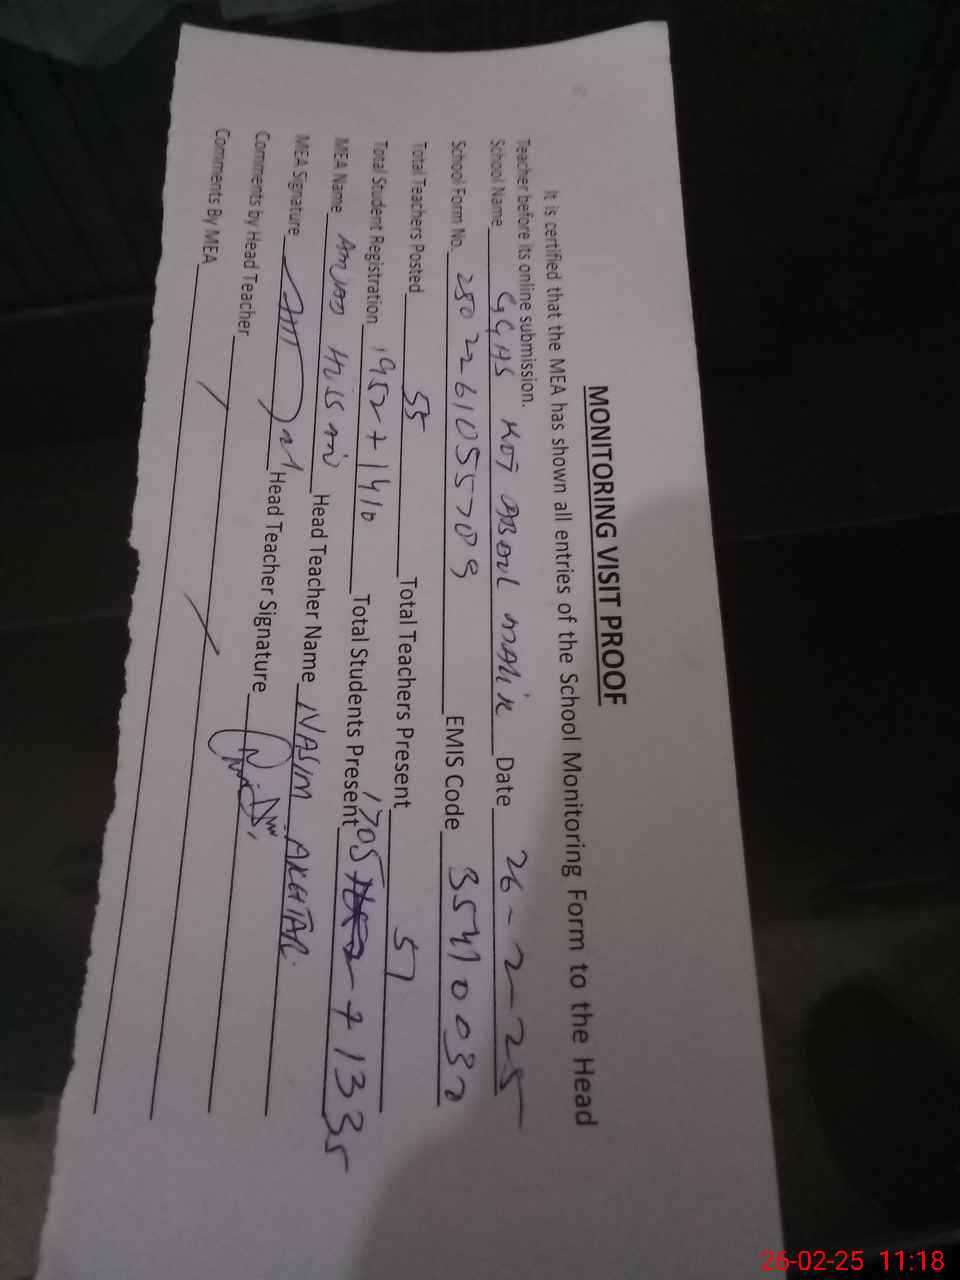 MONITORING VISIT PROOF
It is certified that the MEA has shown all entries of the School Monitoring Form to the Head
Teacher before its online submission.
School Name GGHS KOT ABDUL MALIK Date 26-2-25
School Form No. Total EMIS Code
Total Teachers Posted 55 Total Teachers Present 51
Total Student Registration 1952+1410 Total Students Present 1705 + 1335
MEA Name Head Teacher Name NASIM AKHTAR.
MEA Signature Head Teacher Signature
Comments by Head Teacher
Comments By MEA
26-02-25 11:18